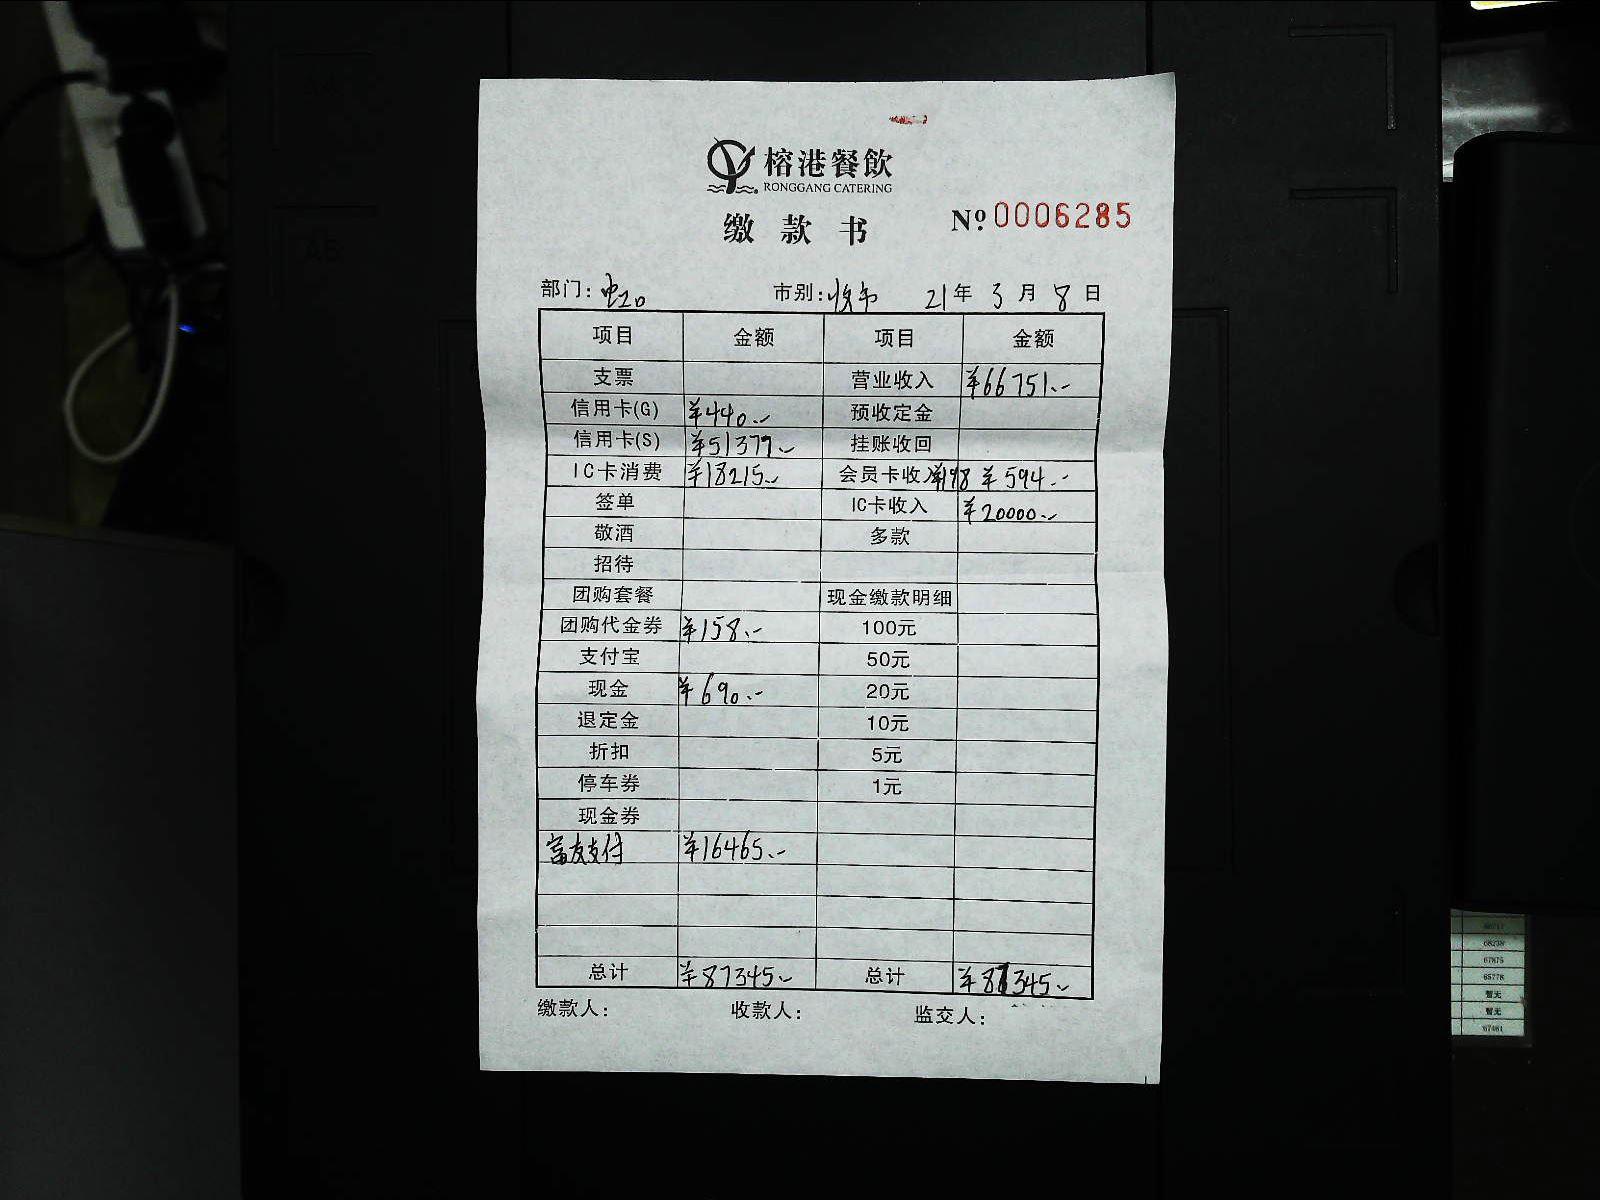 榕港餐飲
RONGGANG CATERING
缴款书 Nº 0006285
部门: 市别: 21年 3月 8日
项目 金额 项目 金额
支票 营业收入 ¥66751.-
信用卡(G) ¥440.- 预收定金
信用卡(S) ¥51377.- 挂账收回
IC卡消费 ¥18215.- 会员卡收入 ¥198 ¥594.-
签单 IC卡收入 ¥20000.-
敬酒 多款
招待
团购套餐 现金缴款明细
团购代金券 ¥158.- 100元
支付宝 50元
现金 ¥690.- 20元
退定金 10元
折扣 5元
停车券 1元
现金券
富友支付 ¥16465.-
总计 ¥87345.- 总计 ¥87345.-
缴款人: 收款人: 监交人:
68238
67875
65778
暂无
暂无
67461